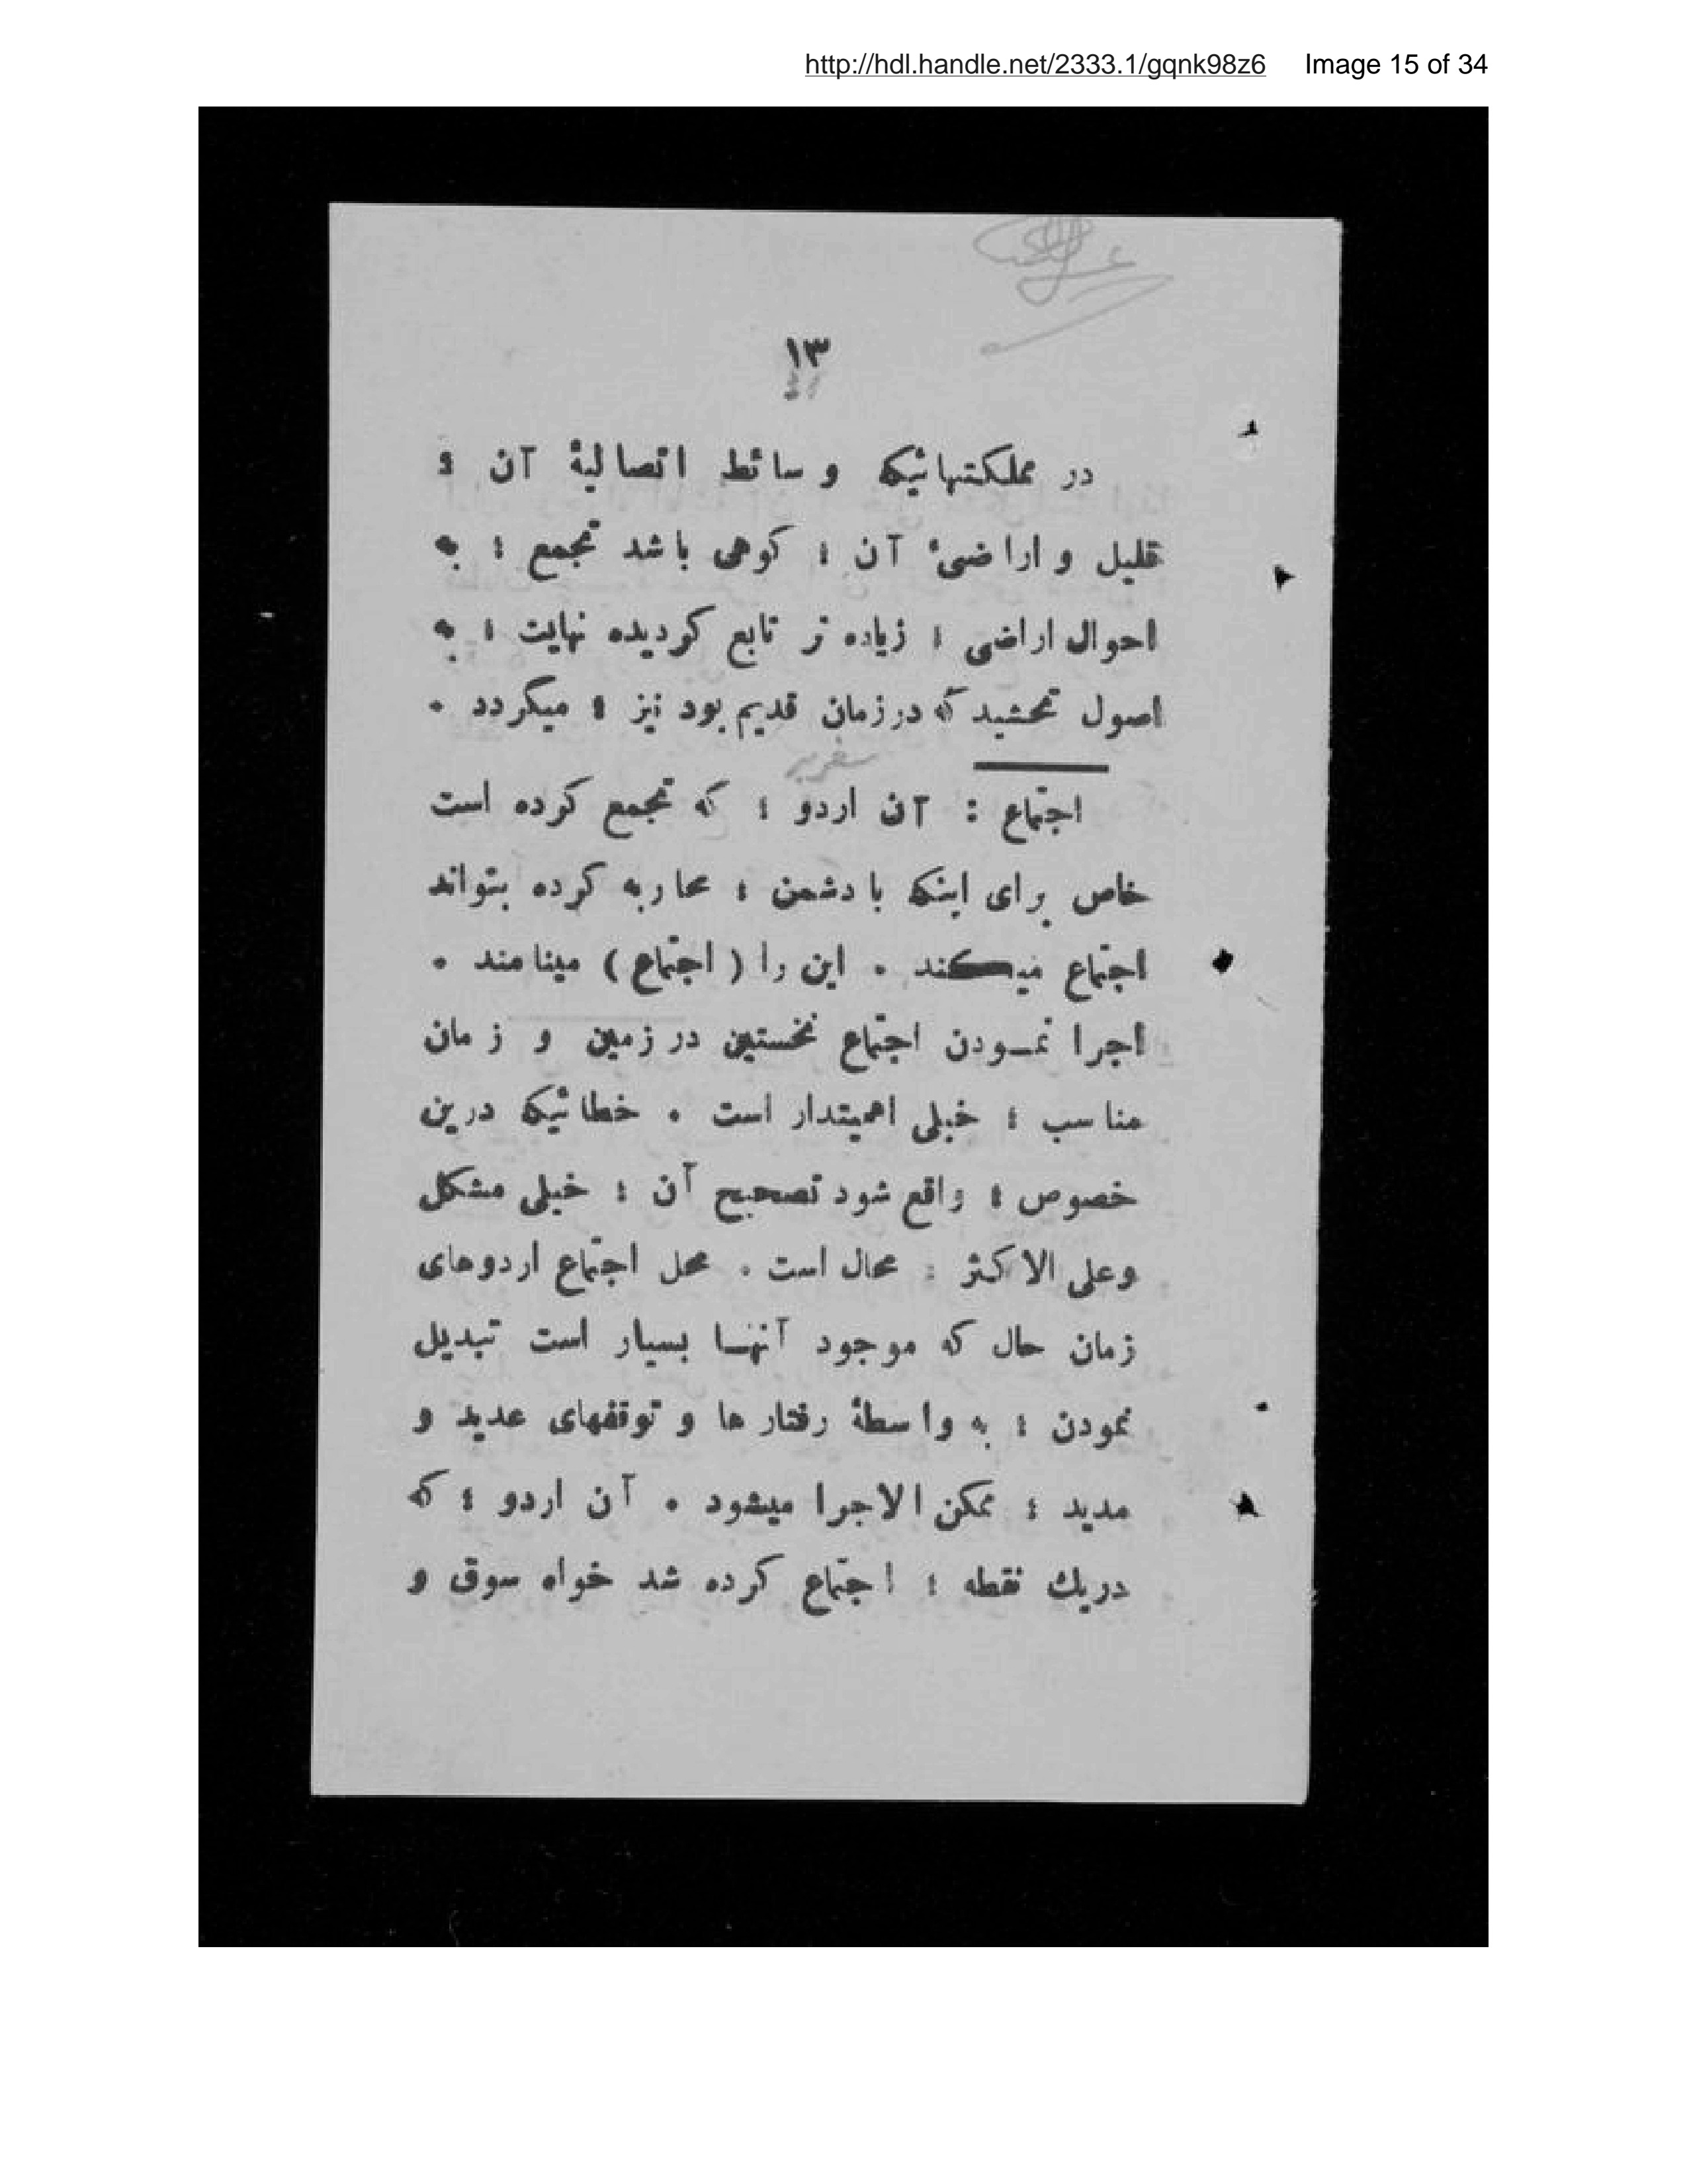 http://hdl.handle.net/2333.1/gqnk98z6 Image 15 of 34
۱۳
در مملکتهائیکه وسائط اتصالیهٔ آن ؛
قلیل و اراضیٔ آن ؛ کوهی باشد تجمع ؛ به
احوال اراضی ؛ زیاده تر تابع گردیده نهایت ؛ به
اصول تحشید که در زمان قدیم بود نیز ؛ میگردد .
اجتماع : آن اردو ؛ که تجمع کرده است
خاص برای اینکه با دشمن ؛ محاربه کرده بتواند
اجتماع میکند . این را ( اجتماع ) مینامند .
اجرا نمودن اجتماع نخستین در زمین و زمان
مناسب ؛ خیلی اهمیتدار است . خطائیکه درین
خصوص ؛ واقع شود تصحیح آن ؛ خیلی مشکل
وعلی الاکثر ؛ محال است . محل اجتماع اردوهای
زمان حال که موجود آنها بسیار است تبدیل
نمودن ؛ به واسطهٔ رفتار ها و توقفهای عدید و
مدید ؛ ممکن الاجرا میشود . آن اردو ؛ که
دریك نقطه ؛ اجتماع کرده شد خواه سوق و